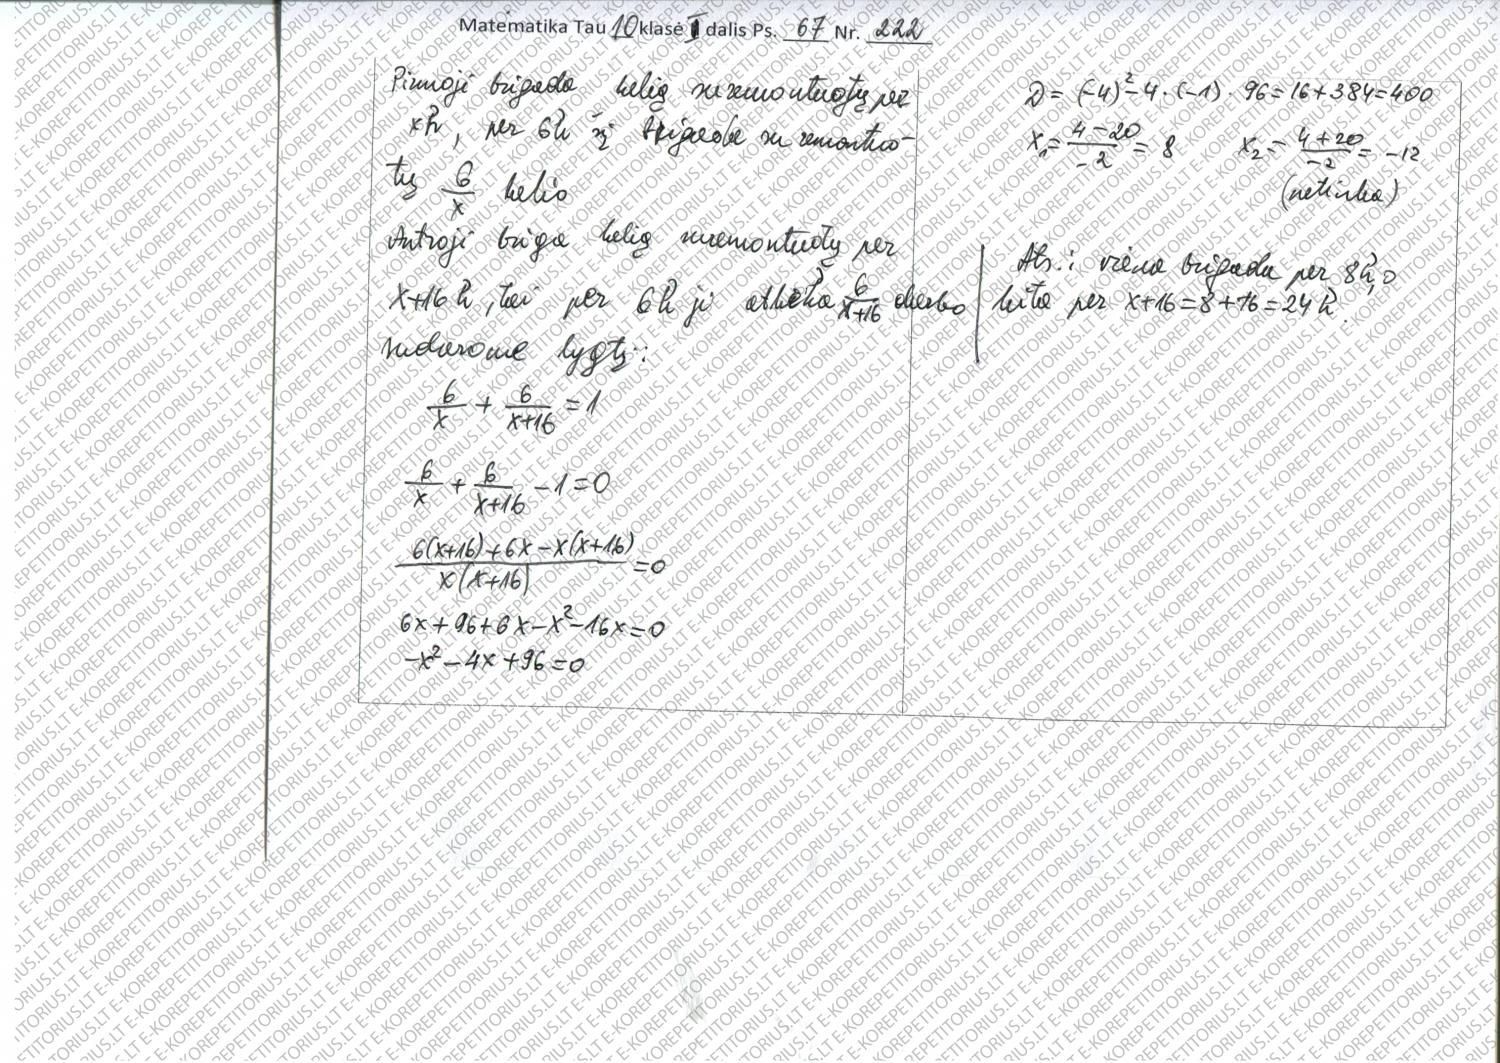 Matematika Tau 10 klasė I dalis Ps. 67 Nr. 222
Pirmoji brigada kelią suremontuotų per
xh, per 6h ši brigada suremontuo-
tų 6/x kelio
Antroji briga kelią suremontuotų per
x+16 h, tai per 6h ji atlieka 6/(x+16) darbo
sudarome lygtį:
6/x + 6/(x+16) = 1
6/x + 6/(x+16) - 1 = 0
(6(x+16)+6x-x(x+16))/(x(x+16)) = 0
6x+96+6x-x²-16x=0
-x²-4x+96=0
D = (-4)²-4·(-1)·96=16+384=400
x₁=(4-20)/(-2)=8 x₂=(4+20)/(-2)=-12
(netinka)
Ats.: viena brigada per 8h, o
kita per x+16=8+16=24h.
E-KOREPETITORIUS.LT